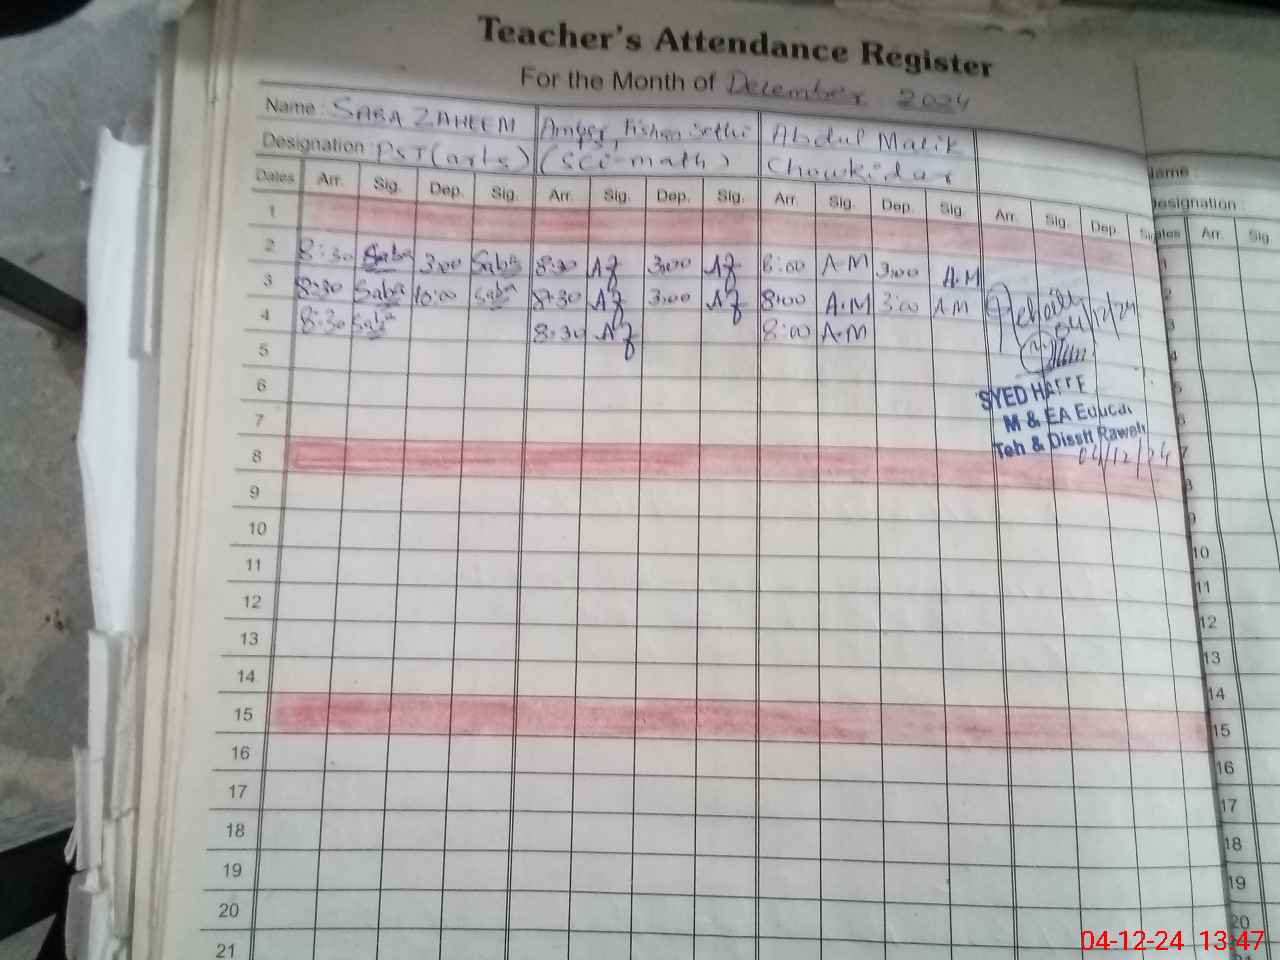 Teacher's Attendance Register
For the Month of December 2024
Name: SABA ZAHEEM Amber Abdul Malik
Designation: PST (arts) (sci-math) Chowkidar
Dates Arr. Sig. Dep. Sig. Arr. Sig. Dep. Sig. Arr. Sig. Dep. Sig. Arr. Sig. Dep.
1
2 8:30 Saba 3:00 Saba 8:30 AZ 3:00 AZ 8:00 A-M 3:00 A.M
3 8:30 Saba 10:00 Saba 8:30 AZ 3:00 AZ 8:00 A.M 3:00 A M
4 8:30 Saba 8:30 AZ 8:00 A-M
5
6
7
8
9
10
11
12
13
14
15
16
17
18
19
20
21
SYED
M & EA
Teh & Disstt
04/12/24
Arr. Sig
10
11
12
13
14
15
16
17
18
19
20
04-12-24 13:47